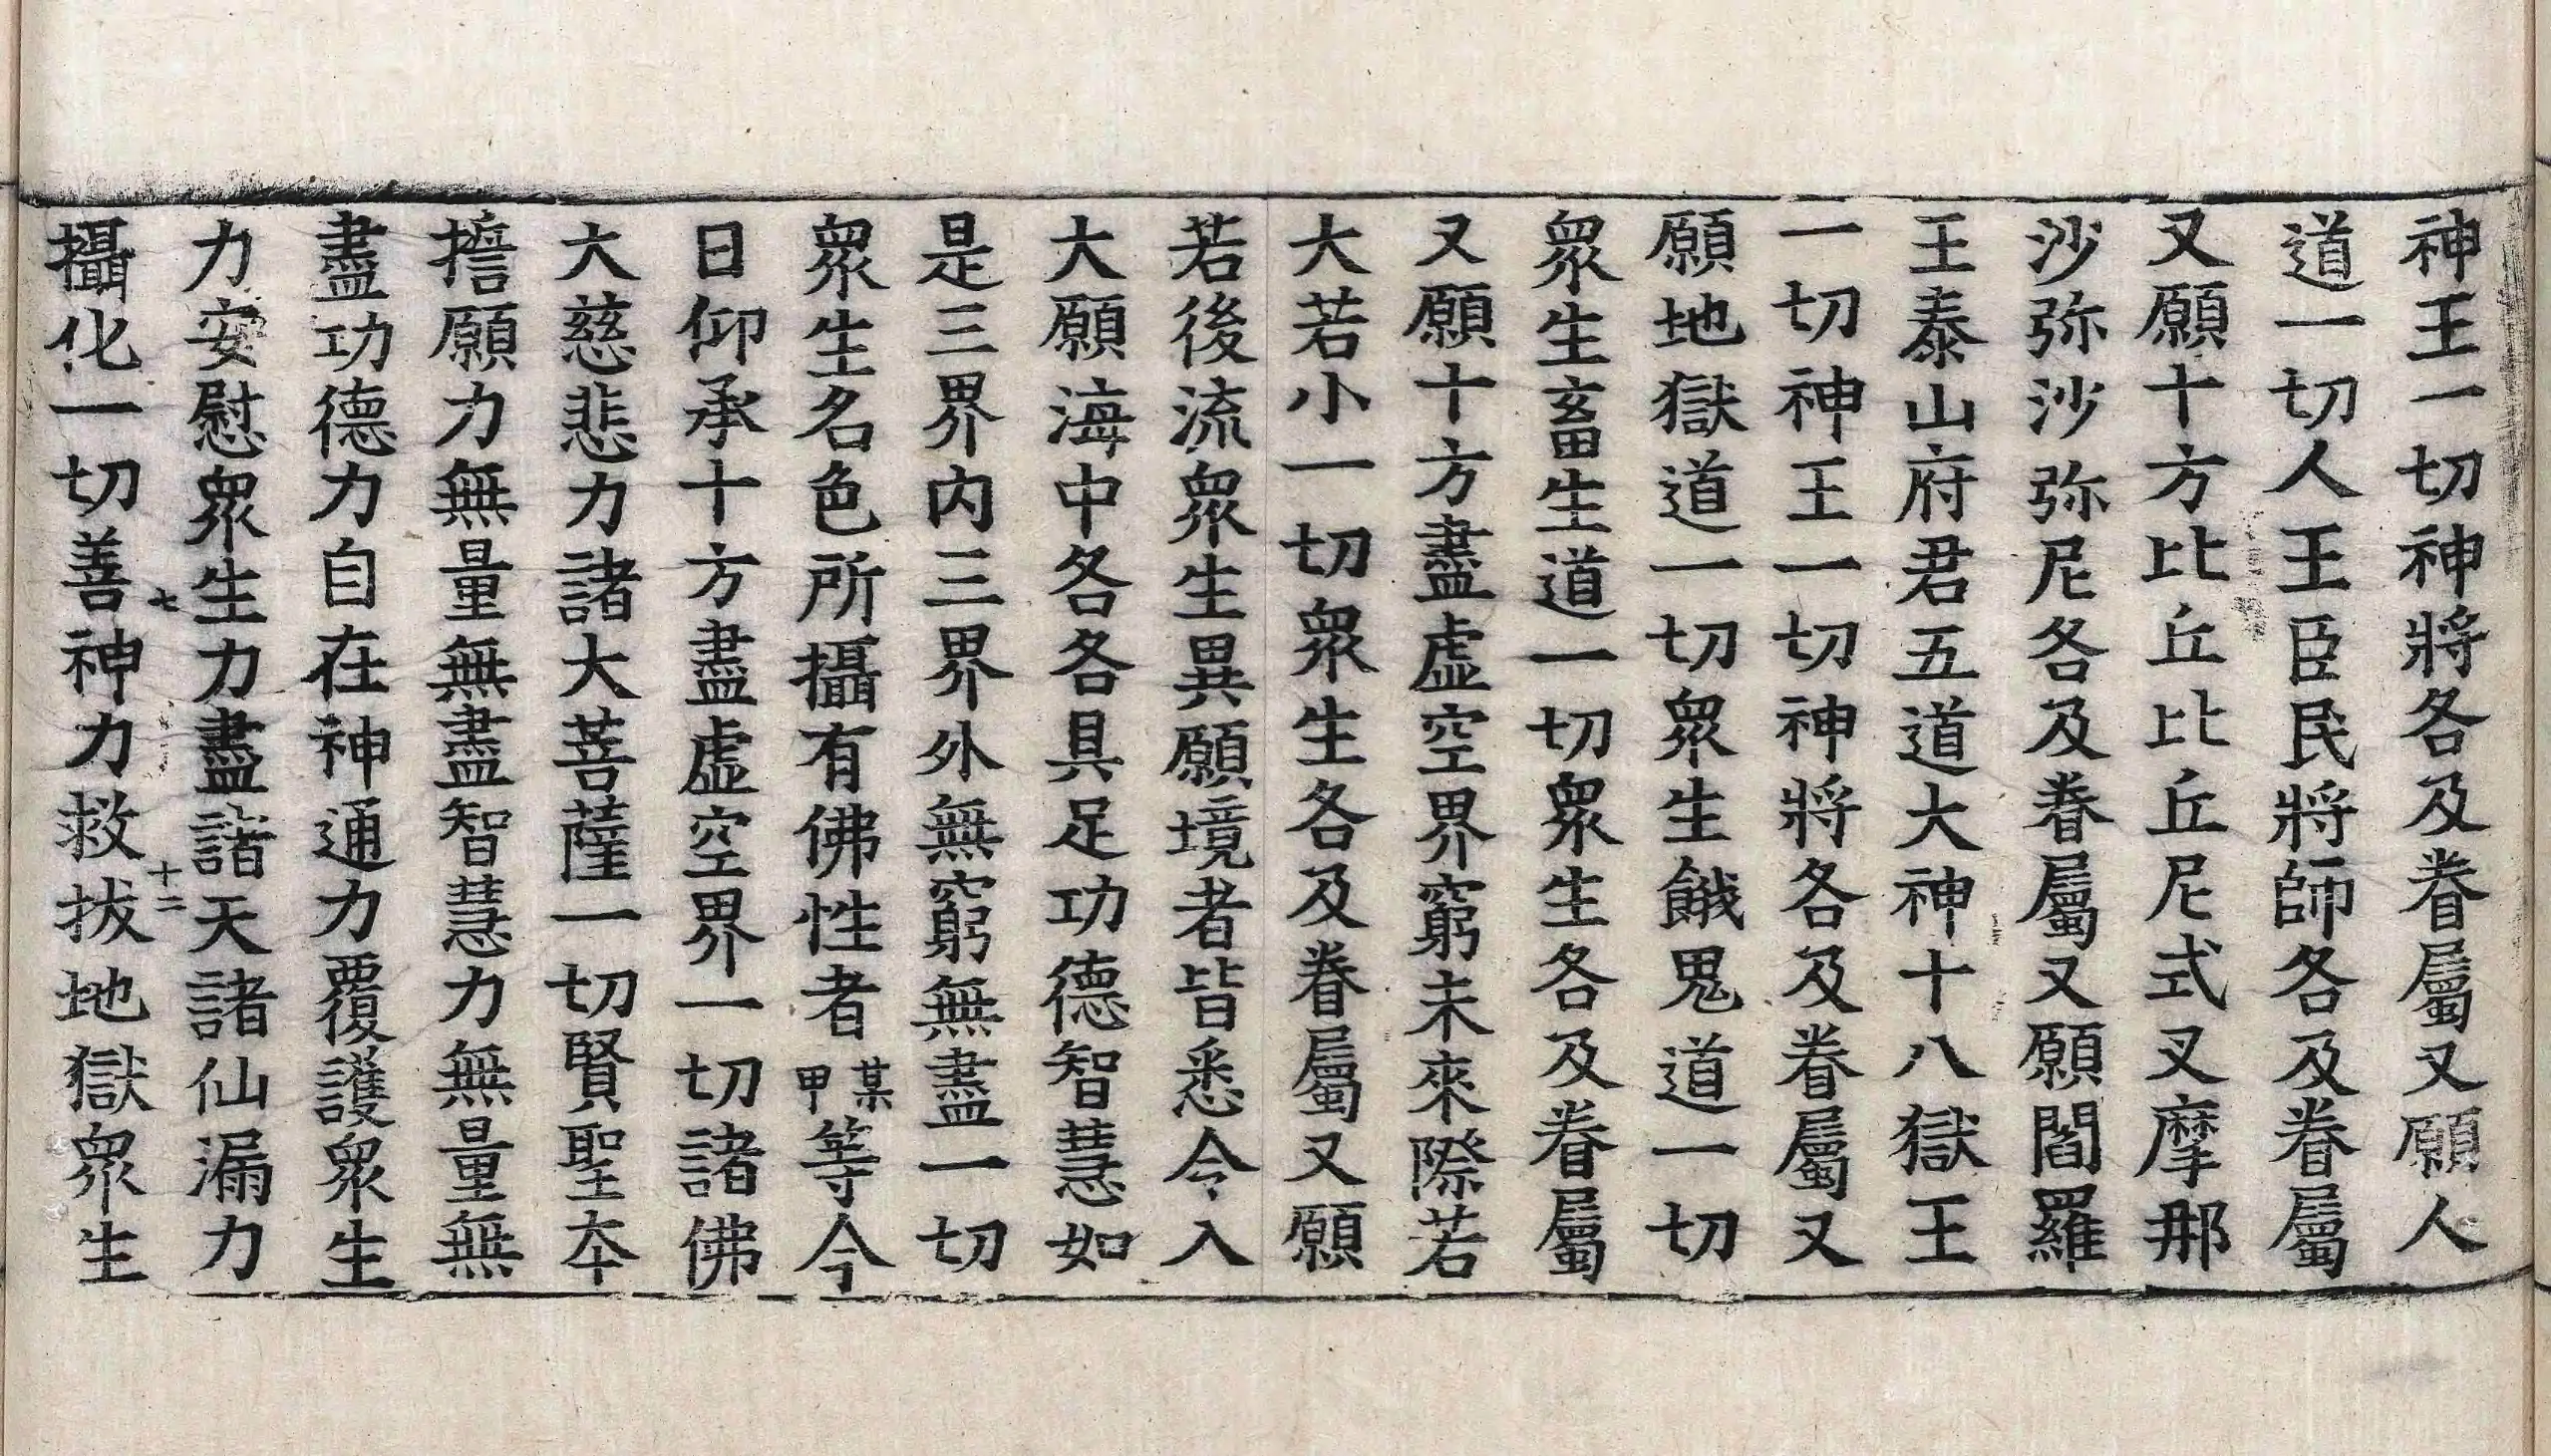 神王一切神將各及眷屬又願人
道一切人王臣民將師各及眷屬
又願十方比丘比丘尼式叉摩那
沙弥沙弥尼各及眷屬又願閻羅
王泰山府君五道大神十八獄王
一切神王一切神將各及眷屬又
願地獄道一切衆生餓鬼道一切
衆生畜生道一切衆生各及眷屬
又願十方盡虛空界窮未來際若
大若小一切衆生各及眷屬又願
若後流衆生異願境者皆悉令入
大願海中各各具足功德智慧如
是三界內三界外無窮無盡一切
衆生名色所攝有佛性者某甲等今
日仰承十方盡虛空界一切諸佛
大慈悲力諸大菩薩一切賢聖夲
擔願力無量無盡智慧力無量無
盡功德力自在神通力覆護衆生
力安慰衆生力盡諸天諸仙漏力
七 十二
攝化一切善神力救拔地獄衆生